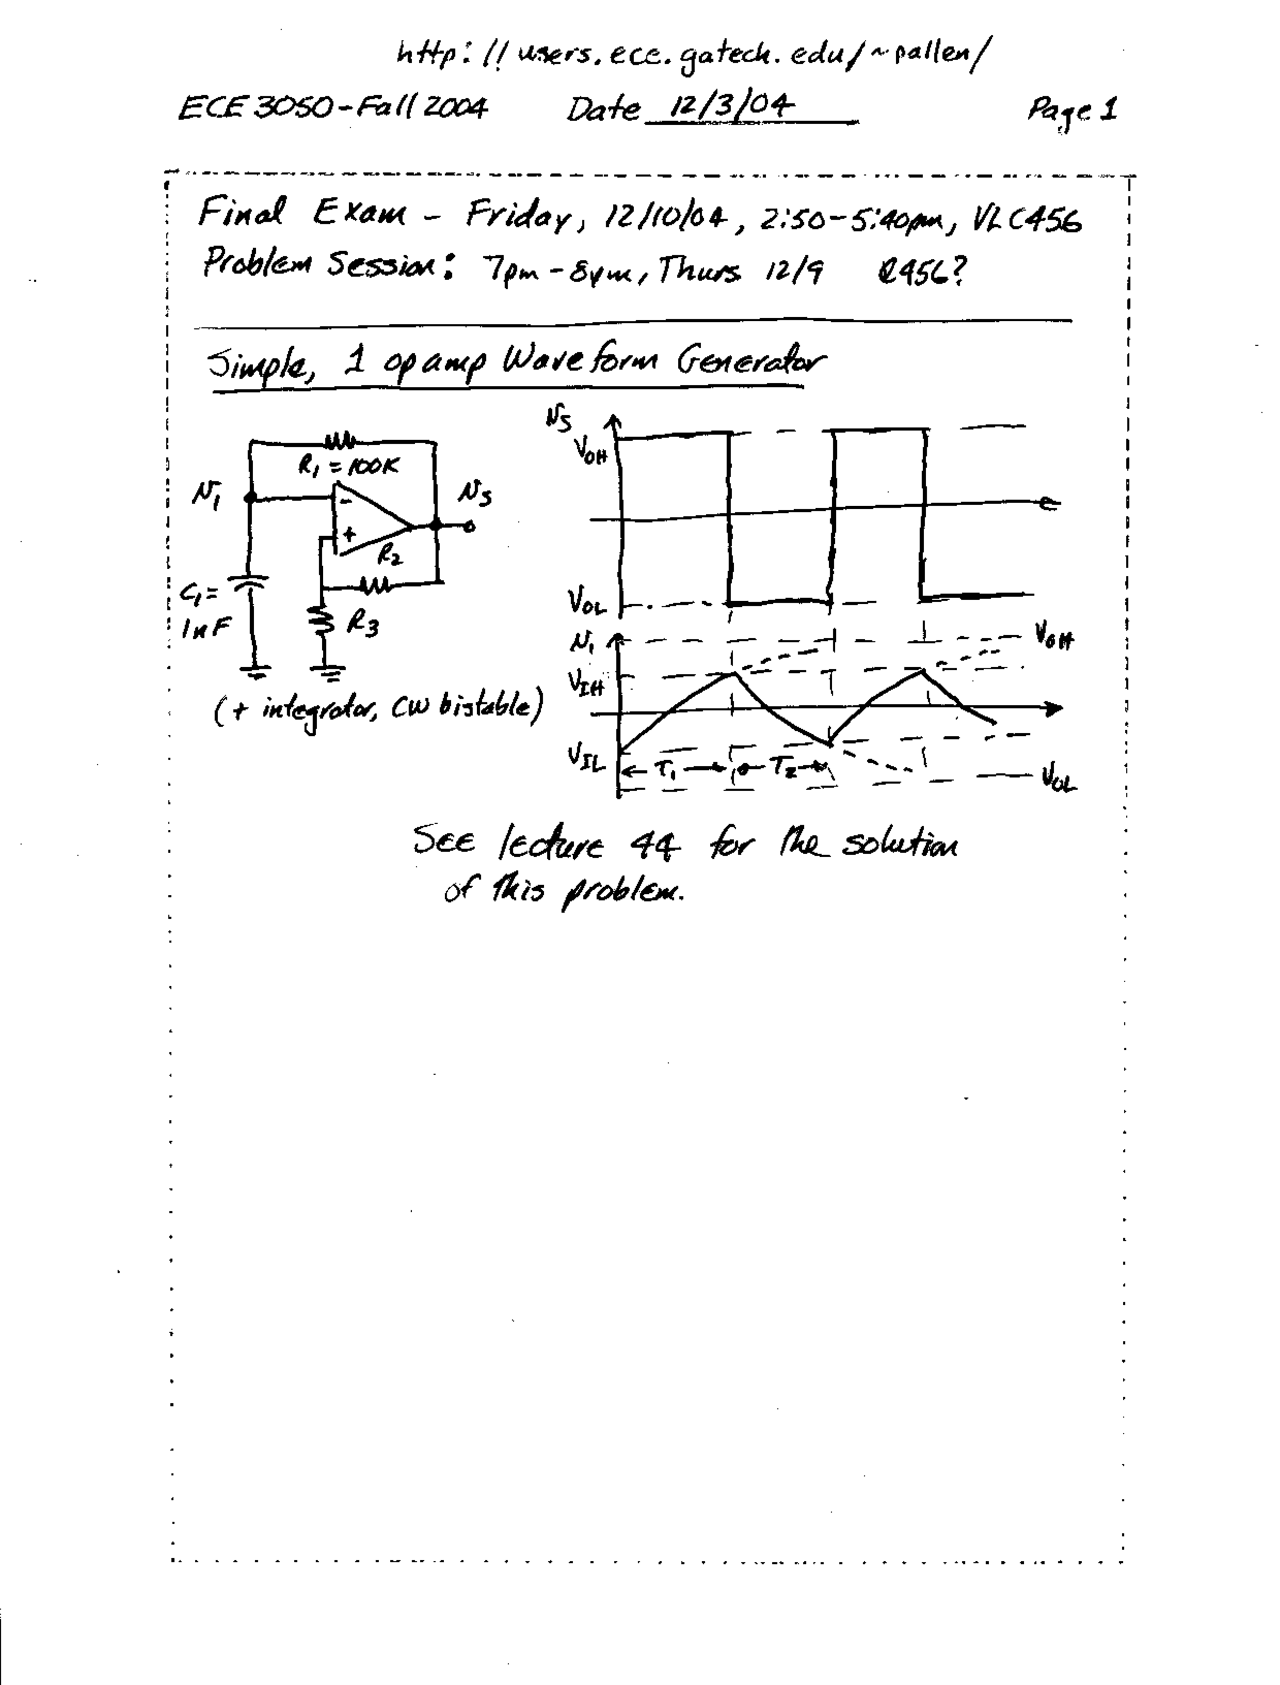 http://users.ece.gatech.edu/~pallen/
ECE 3050-Fall 2004 Date 12/3/04 Page 1
Final Exam - Friday, 12/10/04, 2:50-5:40pm, VLC456
Problem Session: 7pm-8pm, Thurs 12/9 C456?
Simple, 1 op amp Waveform Generator
R1 = 100K
v1
v5
-
+
R2
C1 =
1nF
R3
(+ integrator, CW bistable)
v5
VOH
VOL
v1
VOH
VIH
VIL
T1
T2
VOL
See lecture 44 for the solution
of this problem.